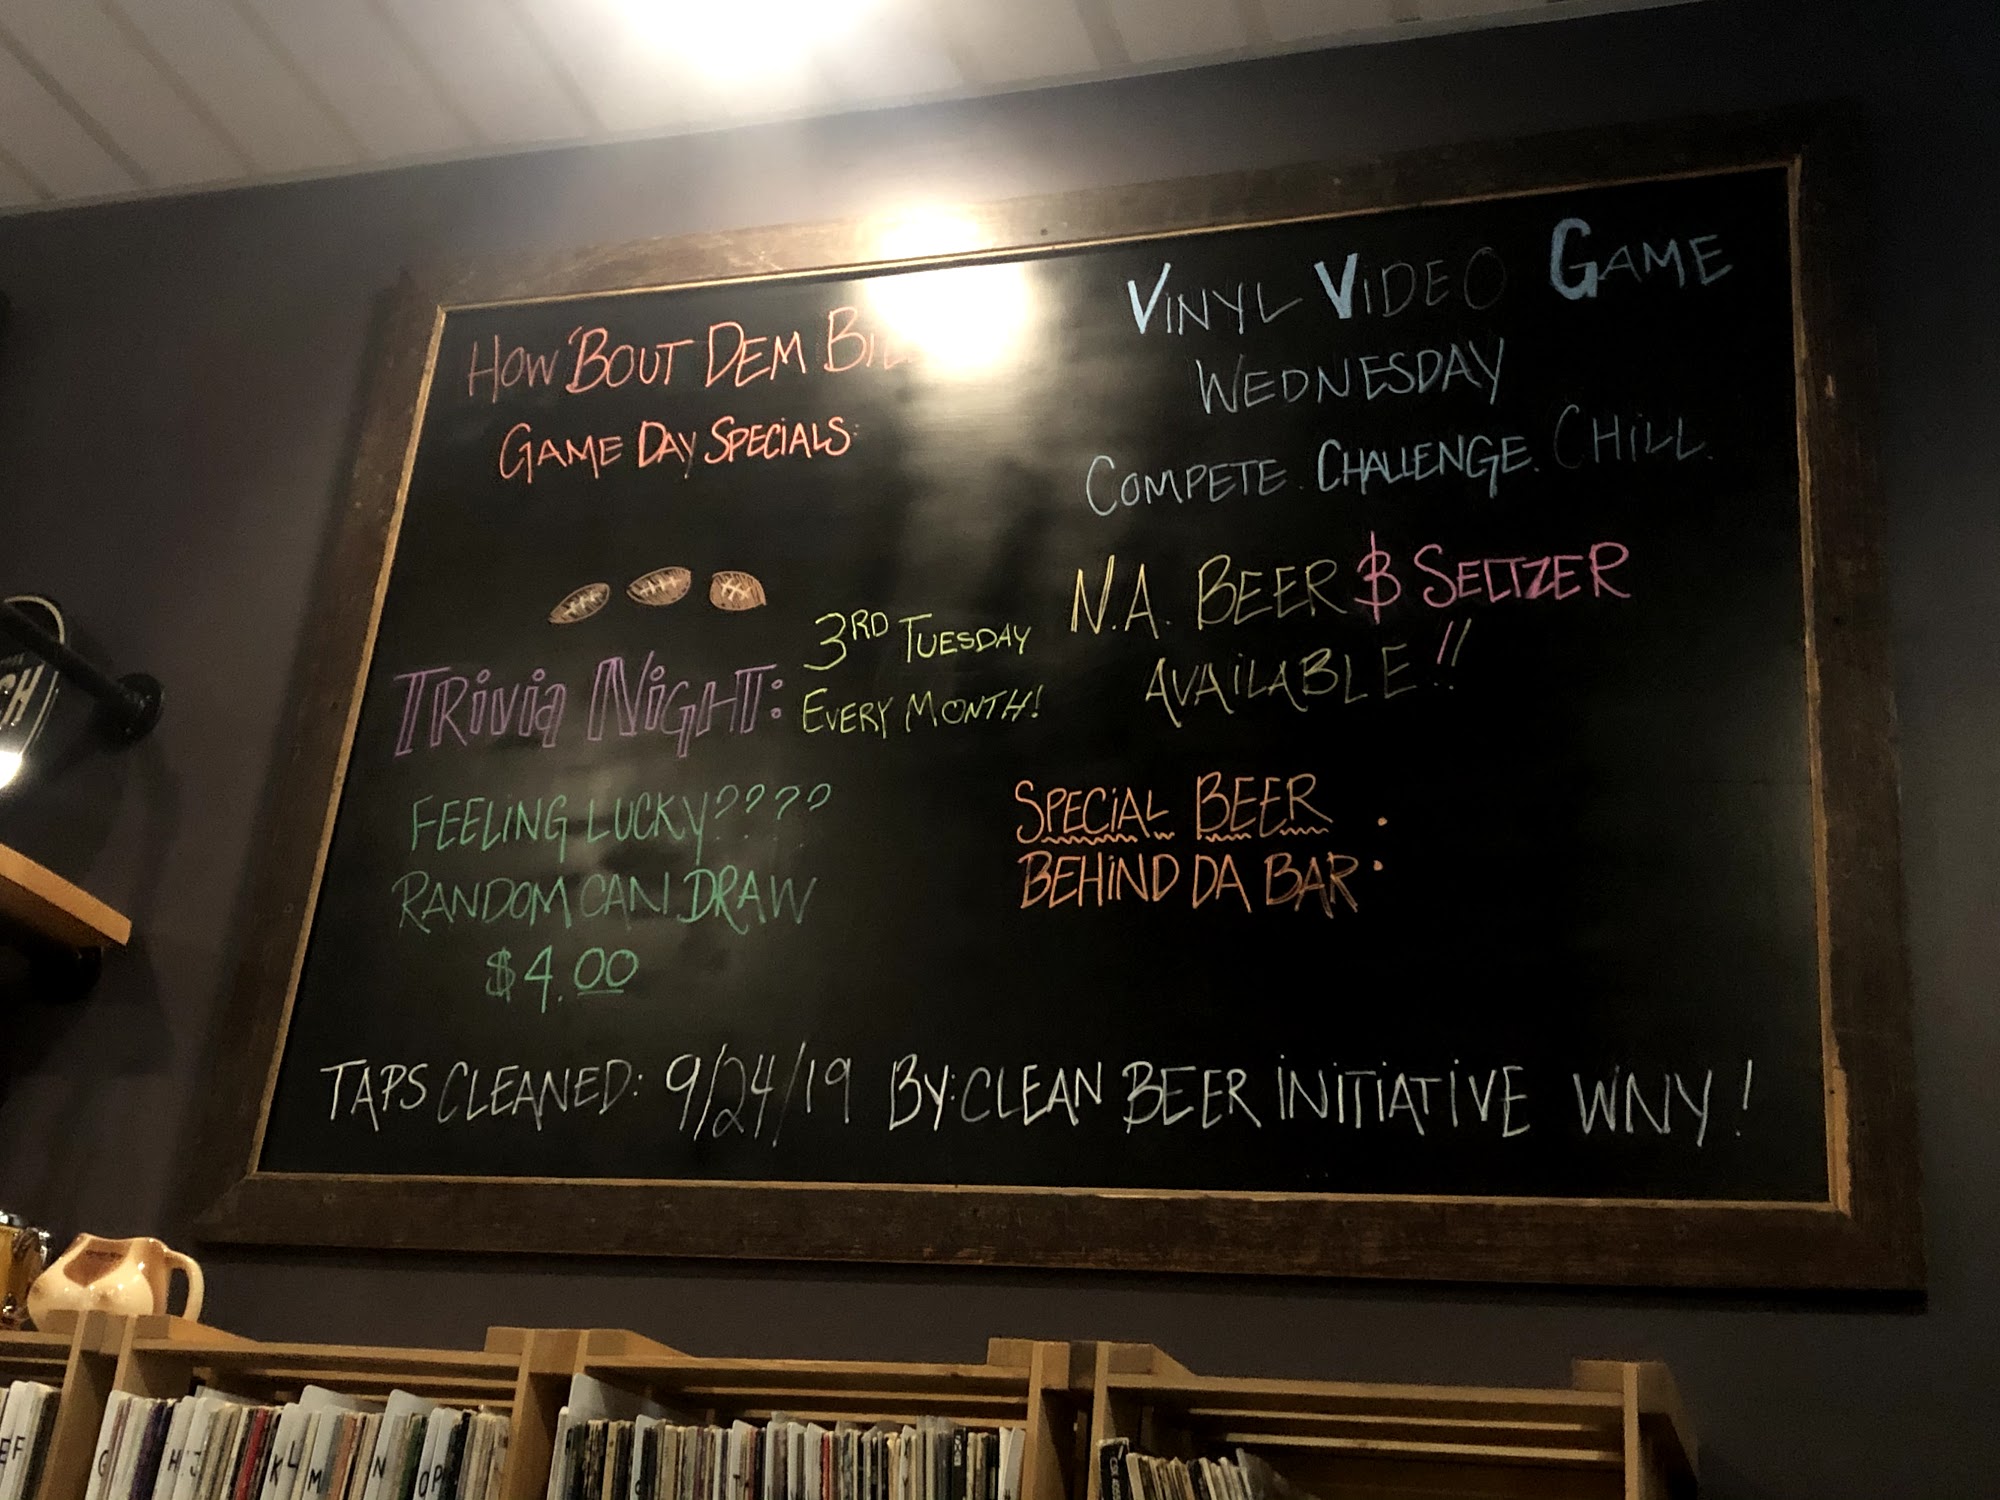 How 'Bout Dem
Game Day Specials:
Trivia Night:
3RD Tuesday
Every Month!
Feeling Lucky????
Random Can Draw
$4.00
Vinyl Video Game
Wednesday
Compete. Challenge. Chill.
N.A. Beer & Seltzer
Available!!
Special Beer
Behind Da Bar:
Taps Cleaned: 9/24/19 By: Clean Beer Initiative WNY!
EF
G
H
J
K
L
M
N
O
P